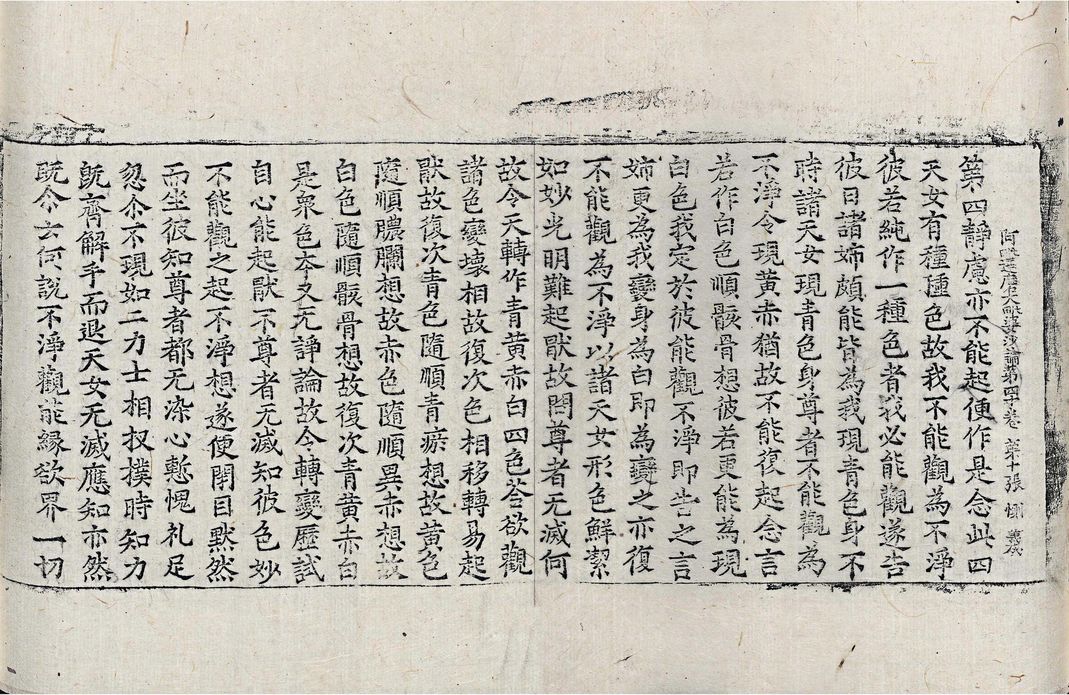 阿毗達磨大毗婆沙論第四十卷 第十張 惻
第四靜慮亦不能起便作是念此四
天女有種種色故我不能觀為不淨
彼若純作一種色者我必能觀遂告
彼曰諸姉頗能皆為我現青色身不
時諸天女現青色身尊者不能觀為
不淨令現黃赤猶故不能復起念言
若作白色順骸骨想彼若更能為現
白色我定於彼能觀不淨即告之言
姉更為我變身為白即為變之亦復
不能觀為不淨以諸天女形色鮮潔
如妙光明難起猒故問尊者无滅何
故令天轉作青黃赤白四色荅欲觀
諸色變壞相故復次色相移轉易起
猒故復次青色隨順青瘀想故黃色
隨順膿爛想故赤色隨順異赤想故
白色隨順骸骨想故復次青黃赤白
是衆色本又无諍論故令轉變歷試
自心能起猒不尊者无滅知彼色妙
不能觀之起不淨想遂便閇目默然
而坐彼知尊者都无染心慙愧礼足
忽尒不現如二力士相扠撲時知力
旣齊解手而退天女无滅應知亦然
旣尒云何說不淨觀能緣欲界一切